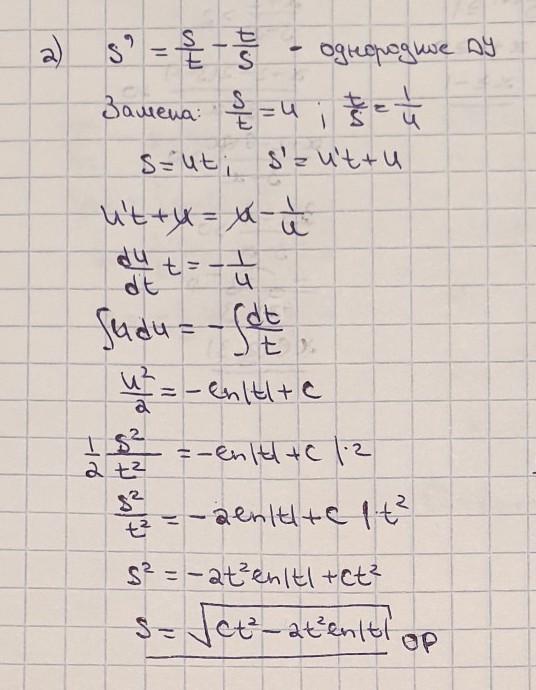 2) s' = s/t - t/s - однородное ДУ
Замена: s/t = u ; t/s = 1/u
s = ut ; s' = u't + u
u't + u = u - 1/u
du/dt t = - 1/u
∫u du = - ∫dt/t
u²/2 = -ln|t| + c
1/2 s²/t² = -ln|t| + c |·2
s²/t² = -2ln|t| + c |·t²
s² = -2t²ln|t| + ct²
s = √(ct² - 2t²ln|t|) ОР